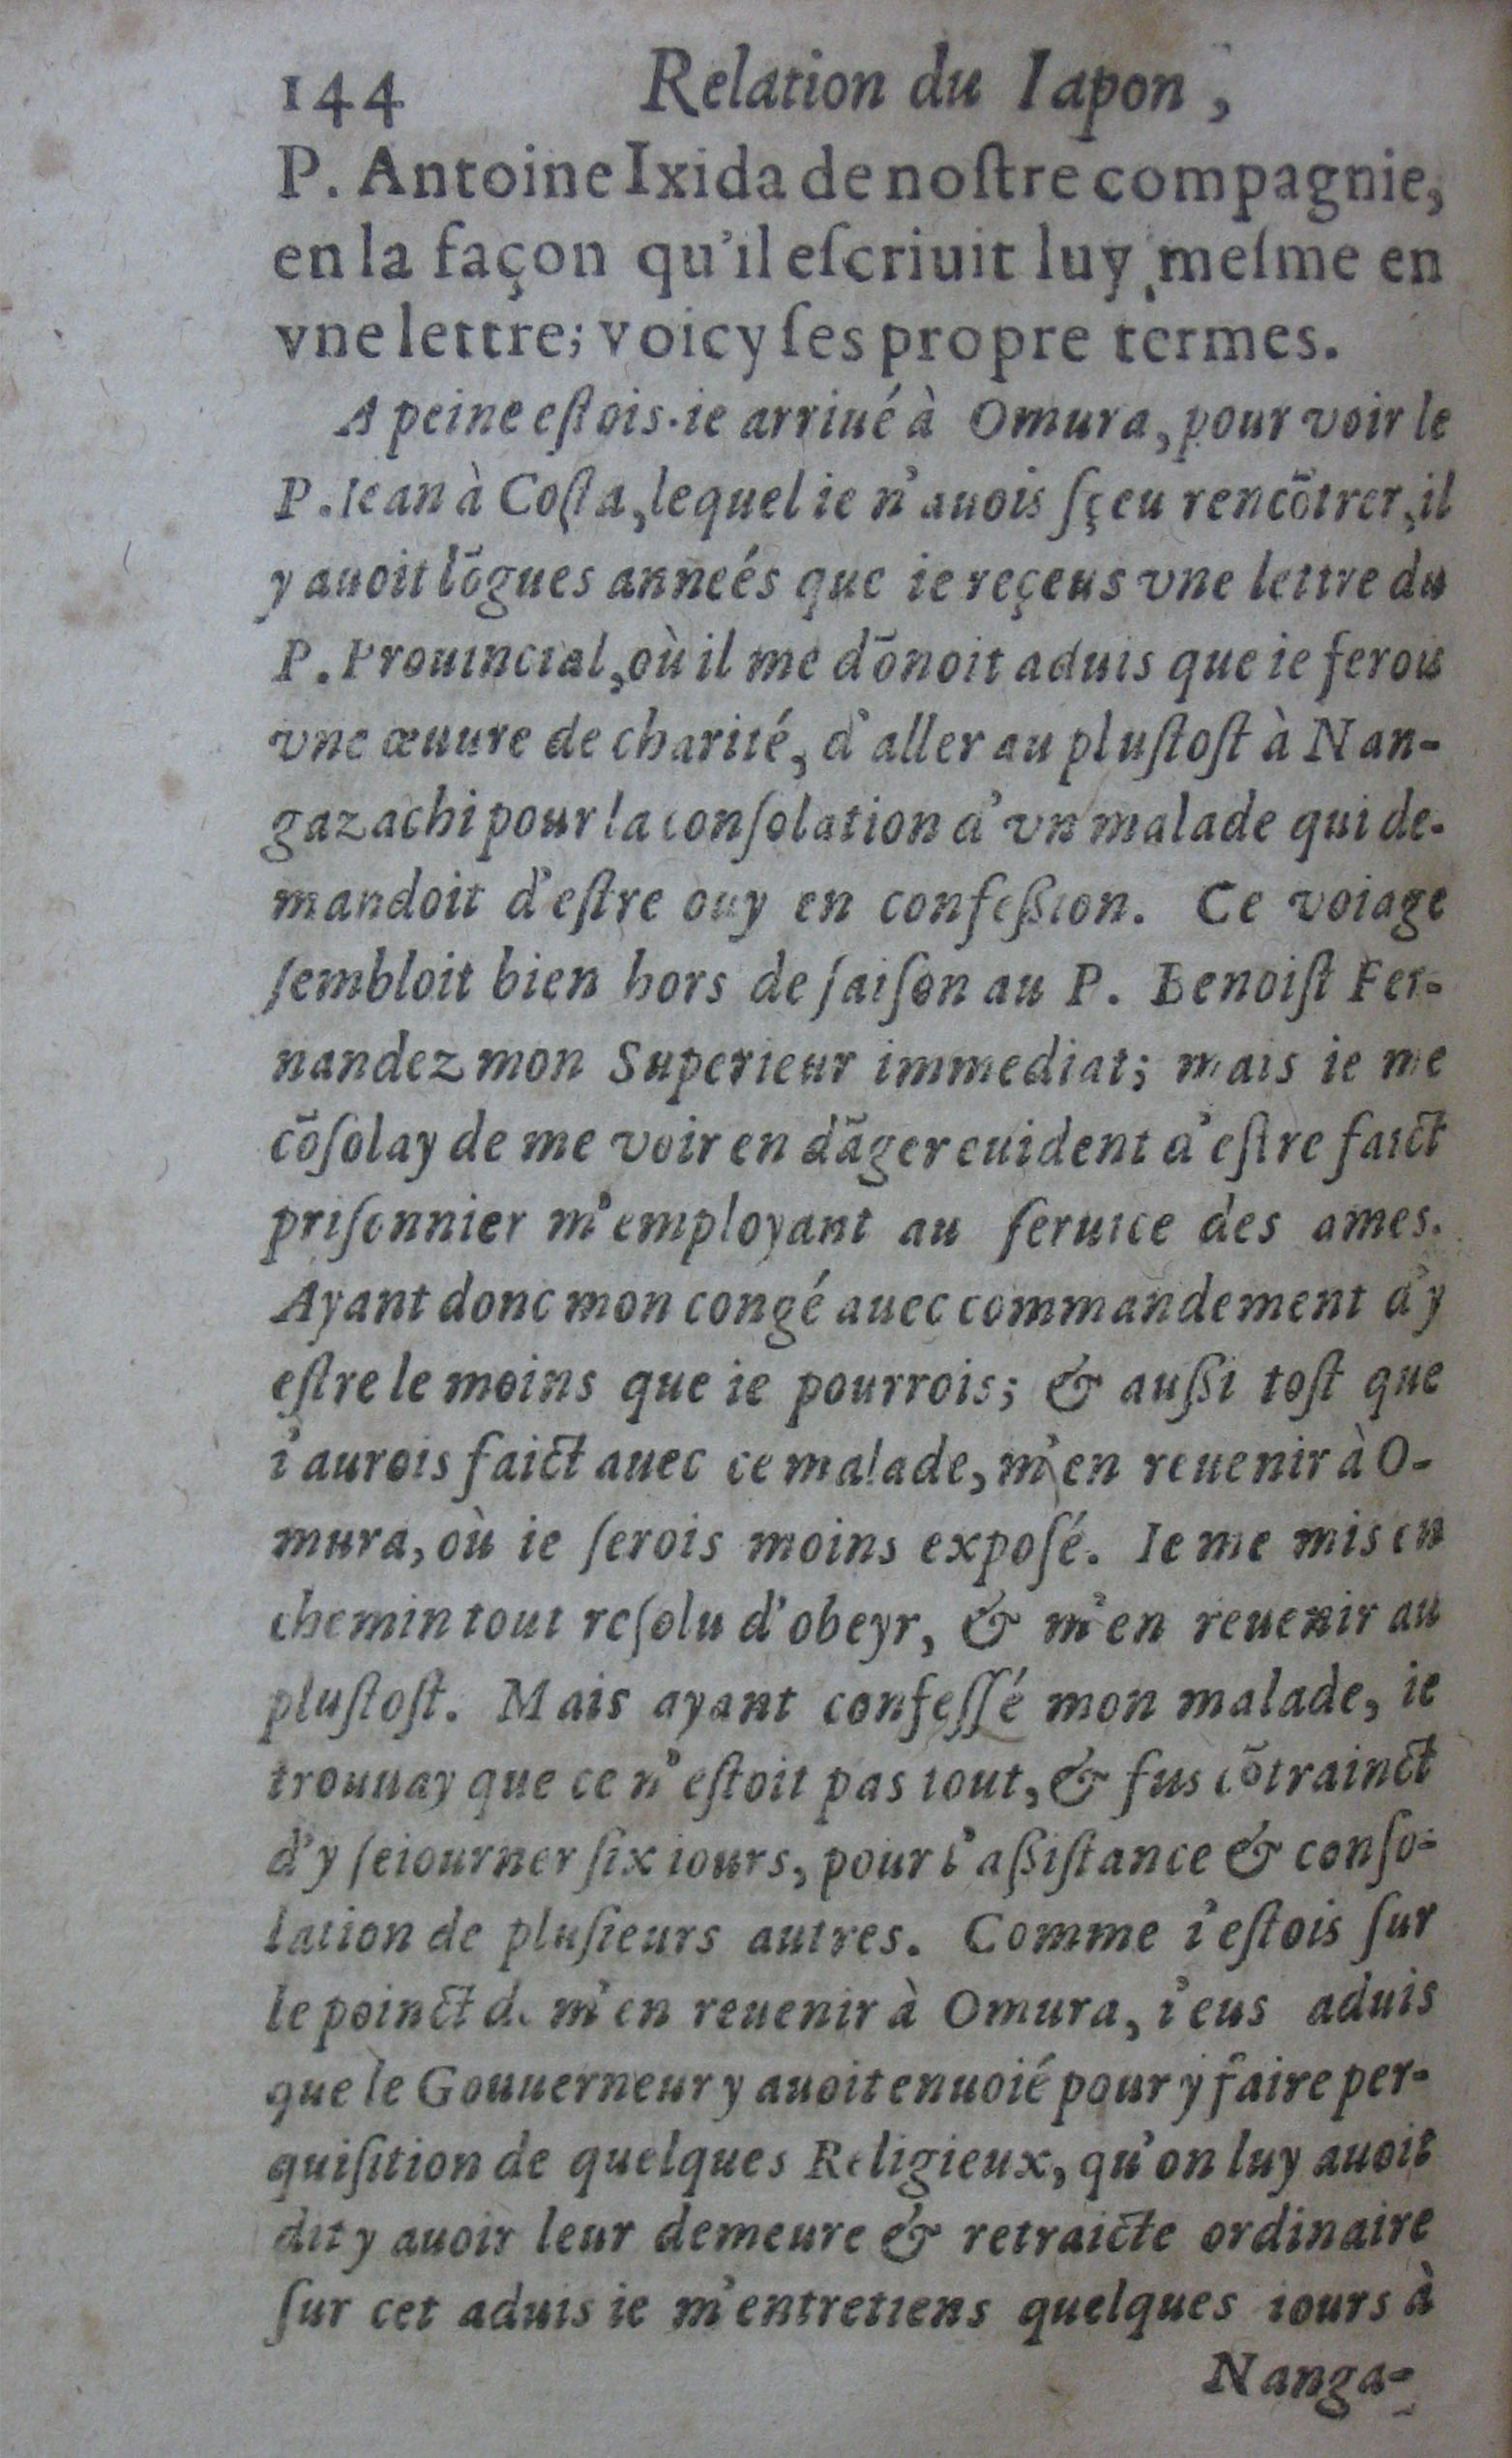 144 Relation du Iapon,
P. Antoine Ixida de noſtre compagnie,
en la façon qu'il eſcriuit luy meſme en
vne lettre; voicy ſes propre termes.
A peine eſtois-ie arriué à Omura, pour voir le
P. Iean à Coſta, lequel ie n'auois ſçeu rencõtrer, il
y auoit lõgues anneés que ie reçeus vne lettre du
P. Prouincial, où il me dõnoit aduis que ie ferois
vne œuure de charité, d'aller au pluſtoſt à Nan-
gazachi pour la conſolation d'vn malade qui de-
mandoit d'eſtre ouy en confeßion. Ce voiage
ſembloit bien hors de ſaiſon au P. Benoiſt Fer-
nandez mon Superieur immediat; mais ie me
cõſolay de me voir en dãger euident d'eſtre faict
priſonnier m'employant au ſeruice des ames.
Ayant donc mon congé auec commandement d'y
eſtre le moins que ie pourrois; & außi toſt que
i'aurois faict auec ce malade, m'en reuenir à O-
mura, où ie ſerois moins expoſé. Ie me mis en
chemin tout reſolu d'obeyr, & m'en reuenir au
pluſtoſt. Mais ayant confeſſé mon malade, ie
trouuay que ce n'eſtoit pas tout, & fus cõtrainct
d'y ſeiourner ſix iours, pour l'aßiſtance & conſo-
lation de pluſieurs autres. Comme i'eſtois ſur
le poinct de m'en reuenir à Omura, i'eus aduis
que le Gouuerneur y auoit enuoié pour y faire per-
quiſition de quelques Religieux, qu'on luy auoit
dit y auoir leur demeure & retraicte ordinaire
ſur cet aduis ie m'entretiens quelques iours à
Nanga-